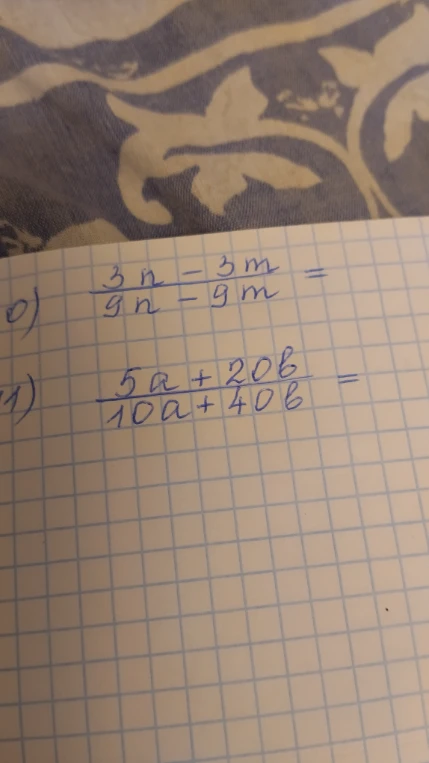 0) 3n - 3m / 9n - 9m =
1) 5a + 20b / 10a + 40b =